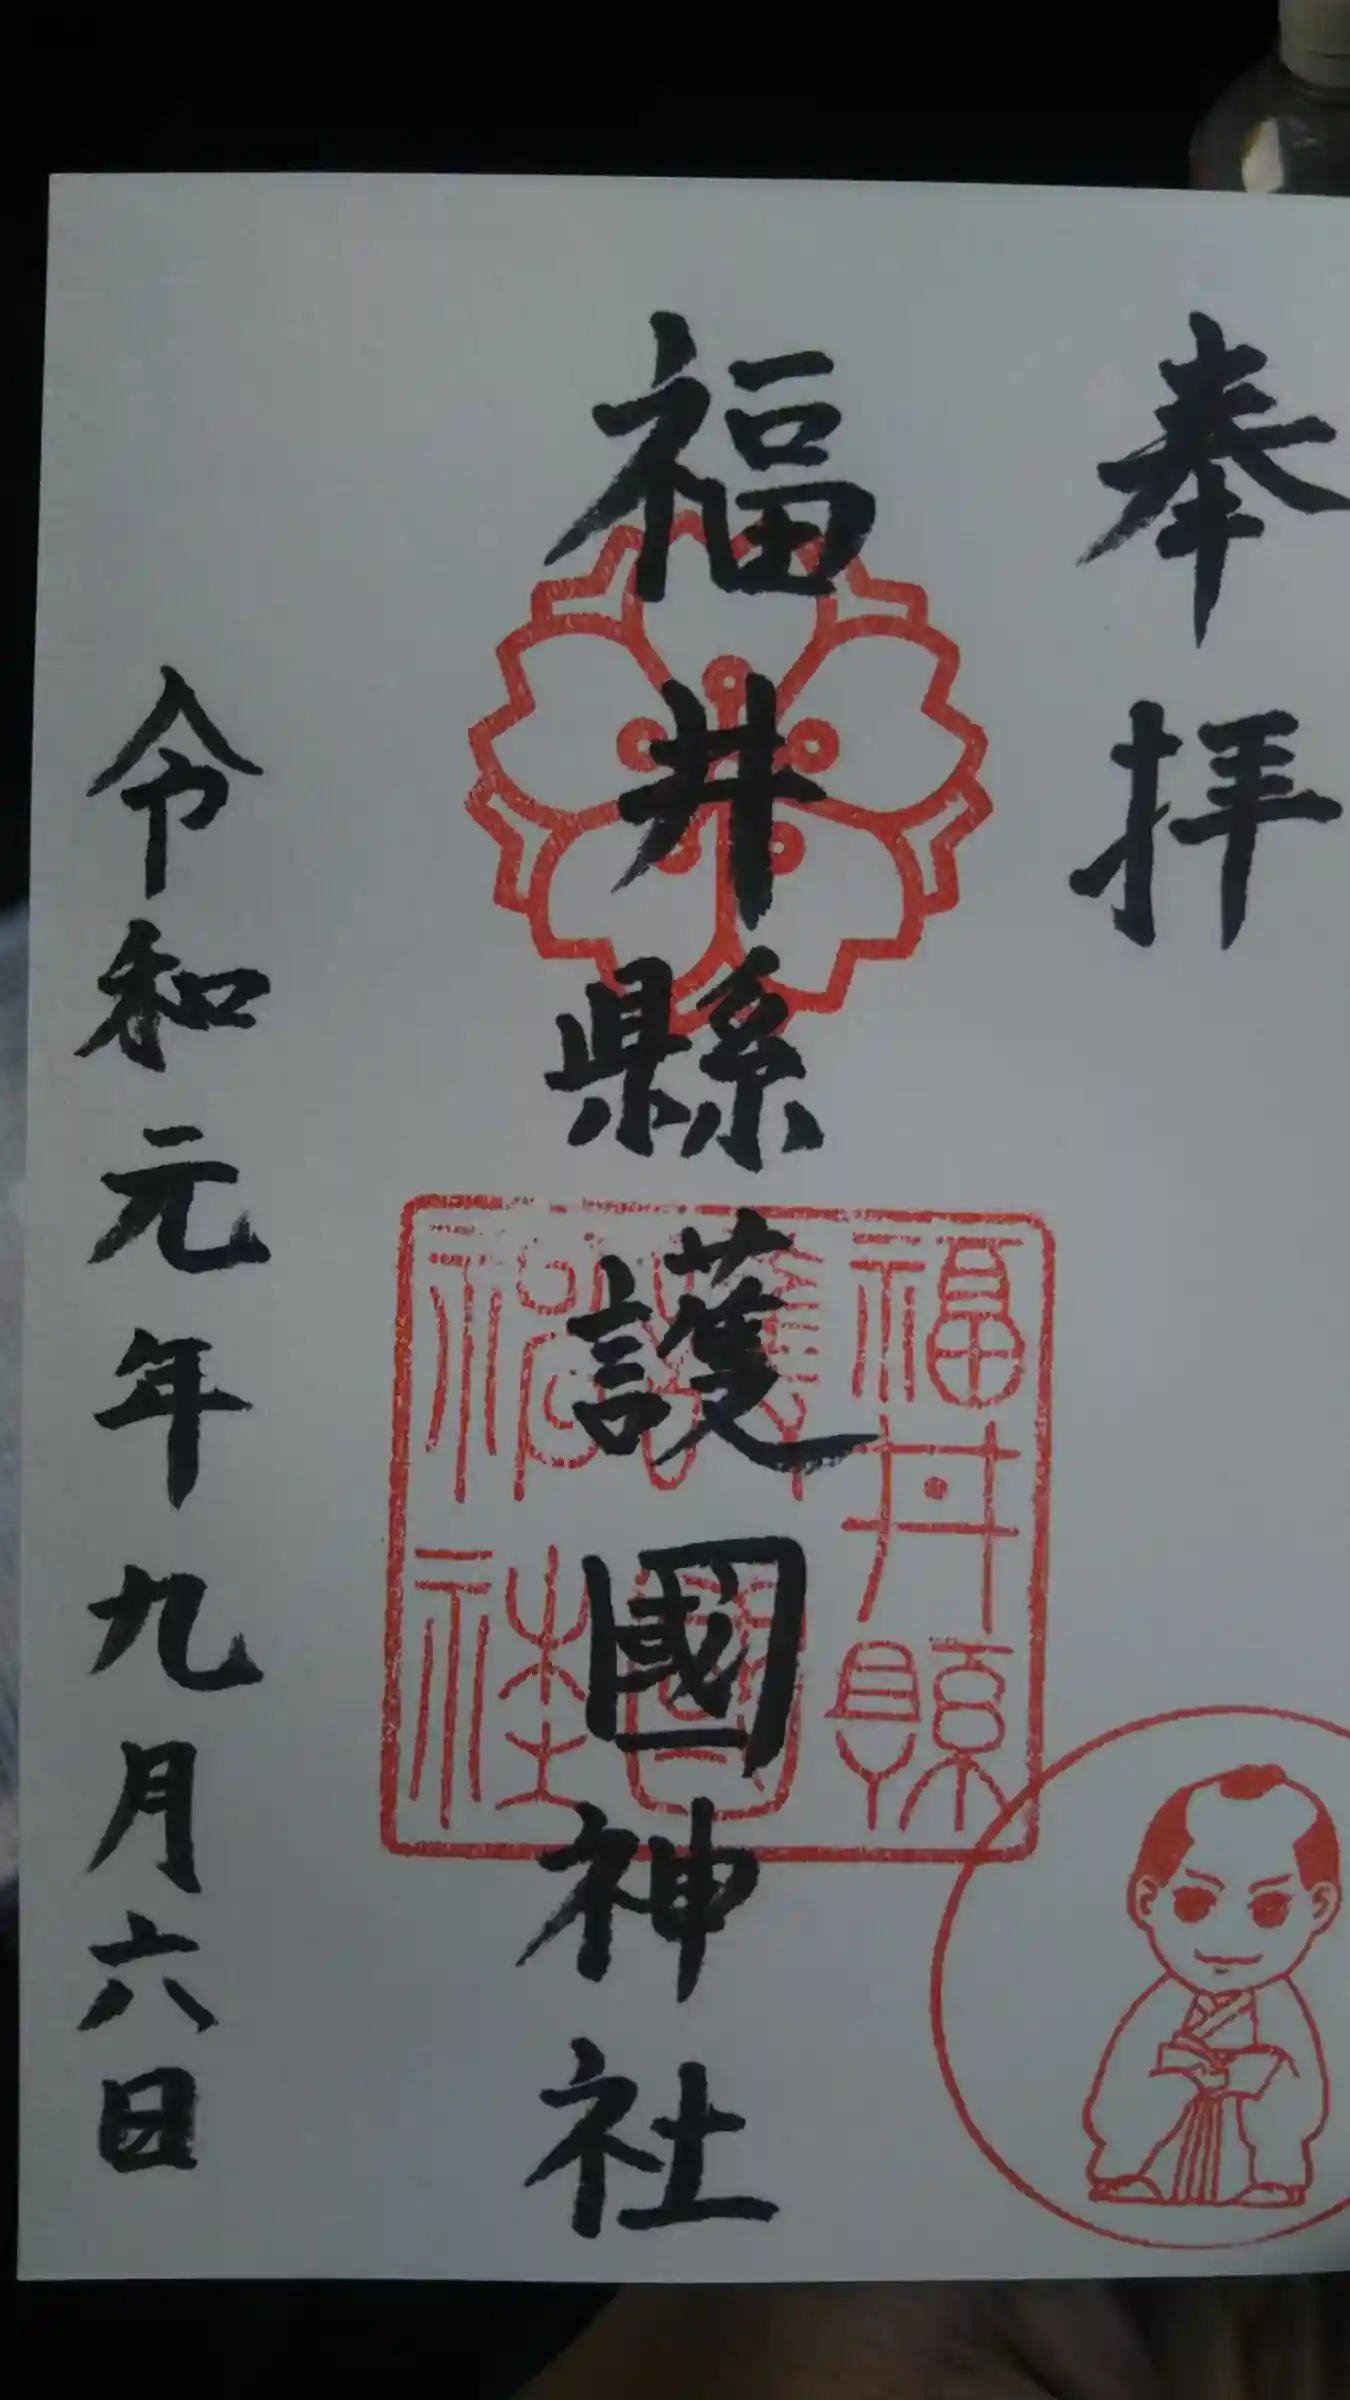 奉拝
福井縣護國神社
福井縣護國神社
令和元年九月六日